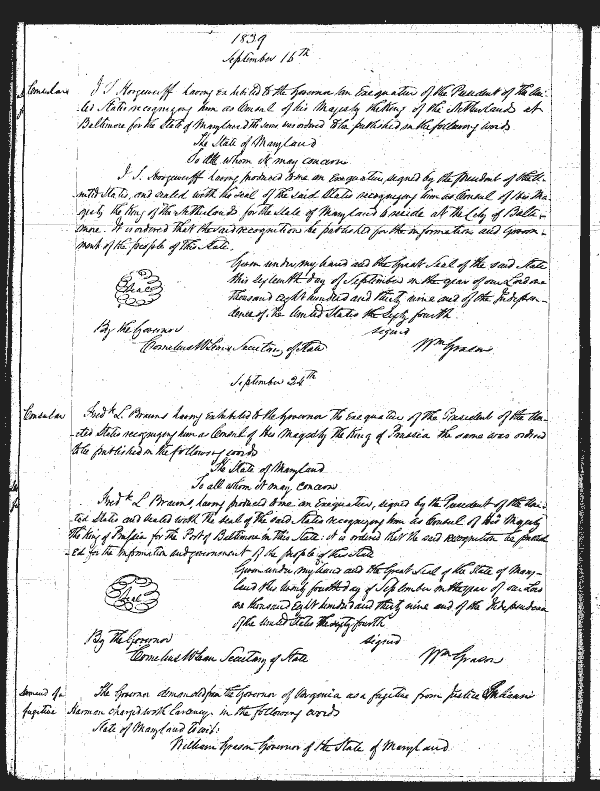 1839
September 16th
Consular
I S. Hogewerff having exhibited to the Governor an Exequatur of the President of the Uni-
ted States recognizing him as Consul of his Majesty the King of the Netherlands at
Baltimore for the State of Maryland the same was ordered to be published in the following words
The State of Maryland
To all whom it may concern
I S. Hogewerff having produced to me an Exequatur, signed by the President of the U-
nited States, and sealed with the seal of the said States recognizing him as Consul of His Ma-
jesty the King of the Netherlands for the State of Maryland to reside at the City of Balti-
more. It is ordered that the said recognition be published for the information and Govern-
ment of the people of this State.
Given under my hand and the Great Seal of the said State
this sixteenth day of September in the year of our Lord one
thousand eight hundred and thirty nine and of the Indepen-
dence of the United States the Sixty fourth
Seal
signed
By the Governor
Wm Grason
Cornelius McLean Secretary of State
September 24th
Consular
Fredk L. Brauns having exhibited to the Governor the Exequatur of the President of the Uni-
ted States recognizing him as Consul of His Majesty the King of Prussia the same was ordered
to be published in the following words
The State of Maryland
To all whom it may concern
Fredk L Brauns, having produced to me an Exequatur, signed by the President of the Uni-
ted States and sealed with the seal of the said States recognizing him as Consul of His Majesty
the King of Prussia for the Port of Baltimore in this State: it is ordered that the said recognition be publish-
ed for the information and government of the people of this state
Given under my hand and the Great Seal of the State of Mary-
land this twenty fourth day of September in the year of our Lord
one thousand eight hundred and thirty nine and of the Independence
of the United States the sixty fourth
Seal
By The Governor
signed
Cornelius McLean Secretary of State
Wm Grason
Demand of a
fugitive
The Governor demanded from the Governor of Virginia as a fugitive from Justice
Harmon charged with Larceny in the following words
State of Maryland to wit:
William Grason Governor of the State of Maryland